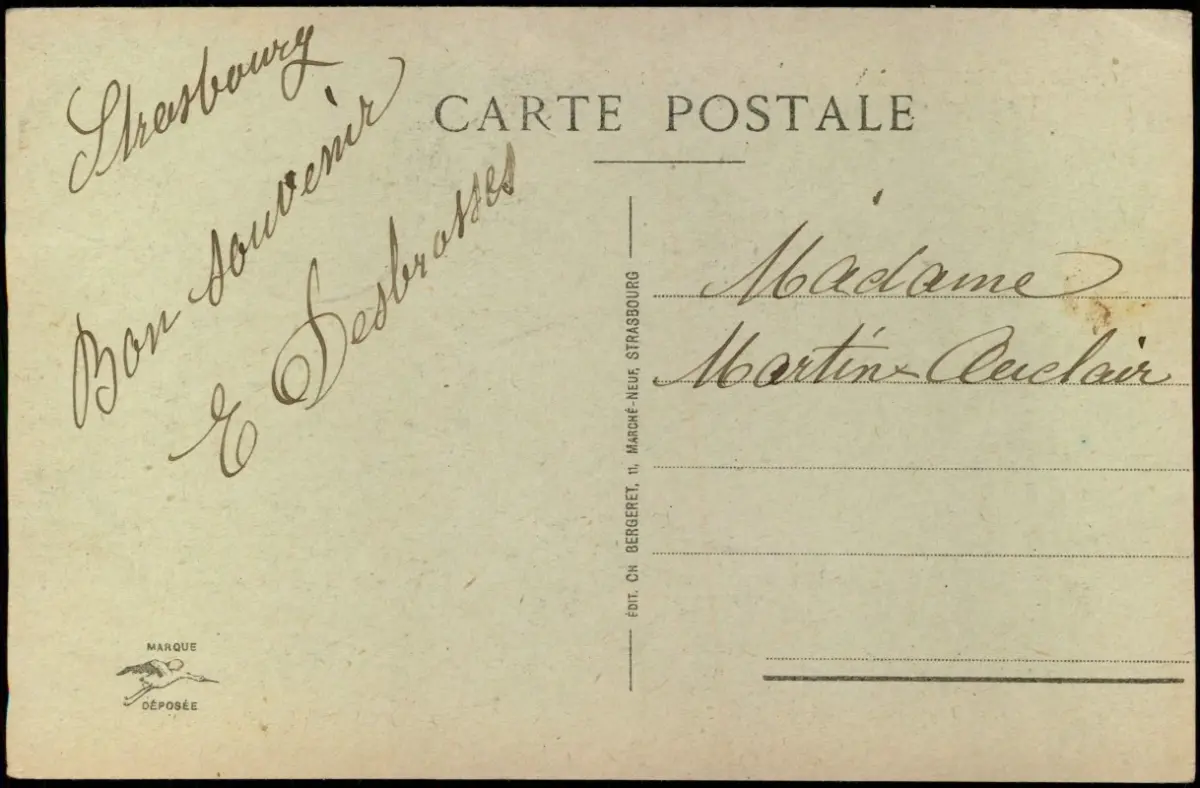 CARTE POSTALE
Strasbourg
Bon souvenir
E Desbrosses
ÉDIT. CH BERGERET, 11, MARCHÉ-NEUF, STRASBOURG
Madame
Martin-Auclair
MARQUE
DÉPOSÉE